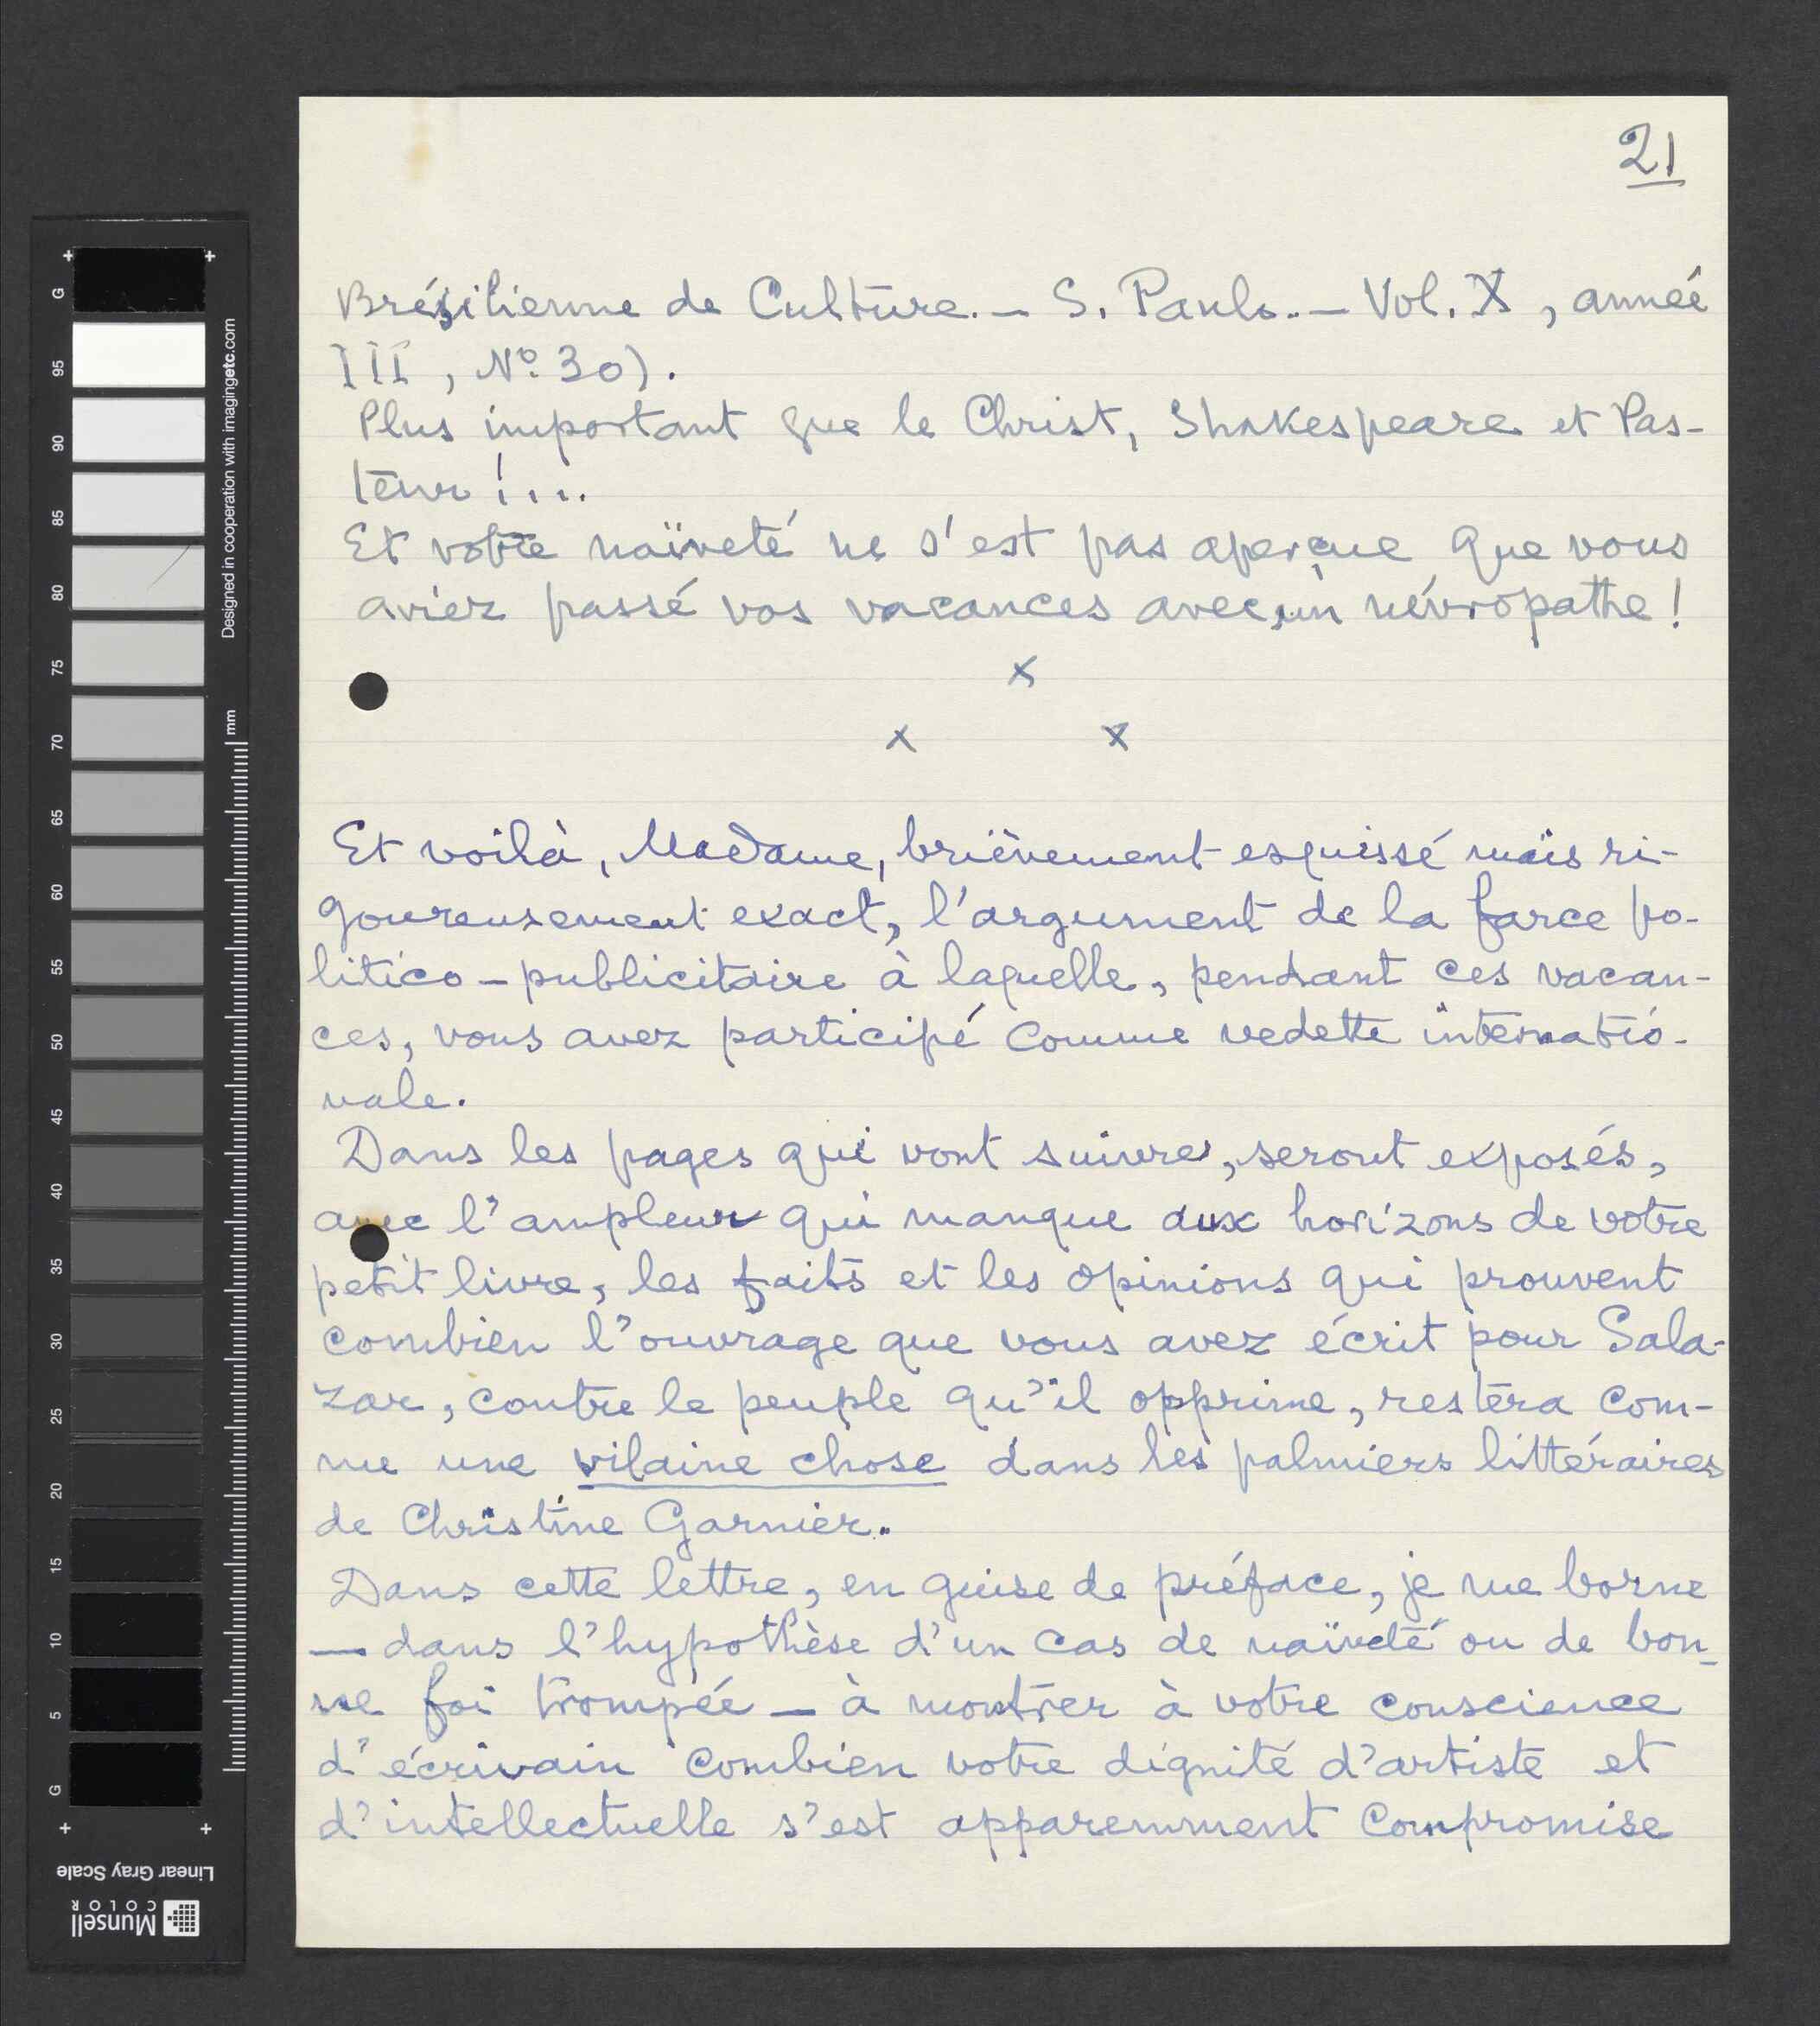 21
Brésilienne de Culture. — S. Paulo. — Vol. X, année
III, Nº 30).
Plus important que le Christ, Shakespeare et Pas-
teur !....
Et votre naïveté ne s'est pas aperçue que vous
aviez passé vos vacances avec un névropathe !
x
x x
Et voilà, Madame, brièvement esquissé mais ri-
goureusement exact, l'argument de la farce po-
litico-publicitaire à laquelle, pendant ces vacan-
ces, vous avez participé comme vedette internatio-
nale.
Dans les pages qui vont suivre, seront exposés,
avec l'ampleur qui manque aux horizons de votre
petit livre, les faits et les opinions qui prouvent
combien l'ouvrage que vous avez écrit pour Sala-
zar, contre le peuple qu'il opprime, restera com-
me une vilaine chose dans les palmiers littéraires
de Christine Garnier.
Dans cette lettre, en guise de préface, je me borne
— dans l'hypothèse d'un cas de naïveté ou de bon-
ne foi trompée — à montrer à votre conscience
d'écrivain combien votre dignité d'artiste et
d'intellectuelle s'est apparemment compromise
G
95
90
85
80
75
70
65
60
55
50
45
40
35
30
25
20
15
10
5
G
Designed in cooperation with imagingetc.com
mm
Linear Gray Scale
Munsell
COLOR